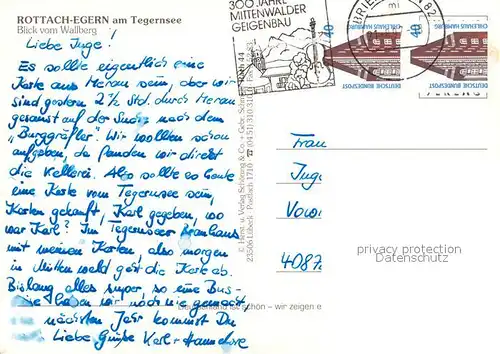 ROTTACH-EGERN am Tegernsee
Blick vom Wallberg
Liebe Inge!
Es sollte eigentlich eine
Karte aus Meran sein, aber wir
sind gestern 2 1/2 Std. durch Meran
gerannt auf der Suche nach dem
„Burggräfler". Wir wollten schon
aufgeben, da fanden wir direkt
die Kellerei. Also sollte es heute
eine Karte vom Tegernsee sein,
Karten gekauft, Karl gegeben, wo
war Karl? Im Tegernseer
mit meinen Karten, also morgen
in Mittenwald geht die Karte ab.
Bislang alles super, so eine Bus-
haben wir noch nie gemacht
nächstes Jahr kommst Du
Liebe Grüße Karl + Hannelore
300 JAHRE
MITTENWALDER
GEIGENBAU
BRIE
82
mi
40
CHILEHAUS HAMBURG
DEUTSCHE BUNDESPOST
40
CHILEHAUS HAMBURG
DEUTSCHE BUNDESPOST
© Horst u. Verlag Schöning & Co. + Gebr. Schmidt
23266 Lübeck Postfach 1710 ☎ (0451) 310 310
Frau
4087
privacy protection
Datenschutz
ist schön – wir zeigen e